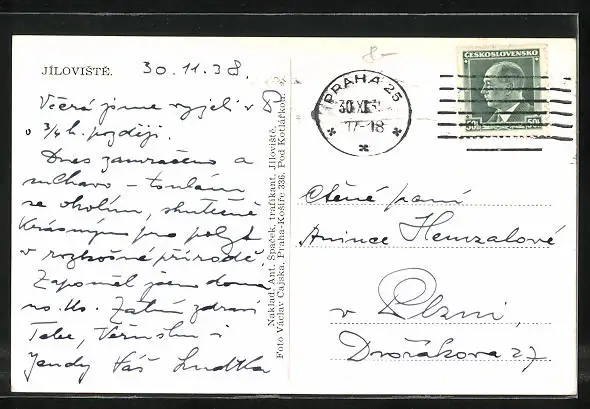 JÍLOVIŠTĚ.
30.11.38.
Včera jsme vyjeli v 8
o 3/4 h. později.
Dnes zamračeno a
sychravo - toulám
se okolím, skutečně
krásným pro pobyt
v rozkošné přírodě.
Zapomněl jsem doma
Zatím zdraví
Tebe, i
Jendy Váš Luďka
Náklad. Ant. Špaček, trafikant, Jíloviště.
Foto Václav Cajska, Praha-Košíře 336, Pod Kotlářkou.
8-
PRAHA 25
30 XI 3
17-18
ČESKOSLOVENSKO
50h 50h
Ctěné paní
Anince Hemzalové
v Plzni,
Dvořákova 27